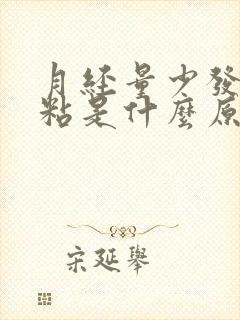 月經量少發
粘是什麼原
宋延舉